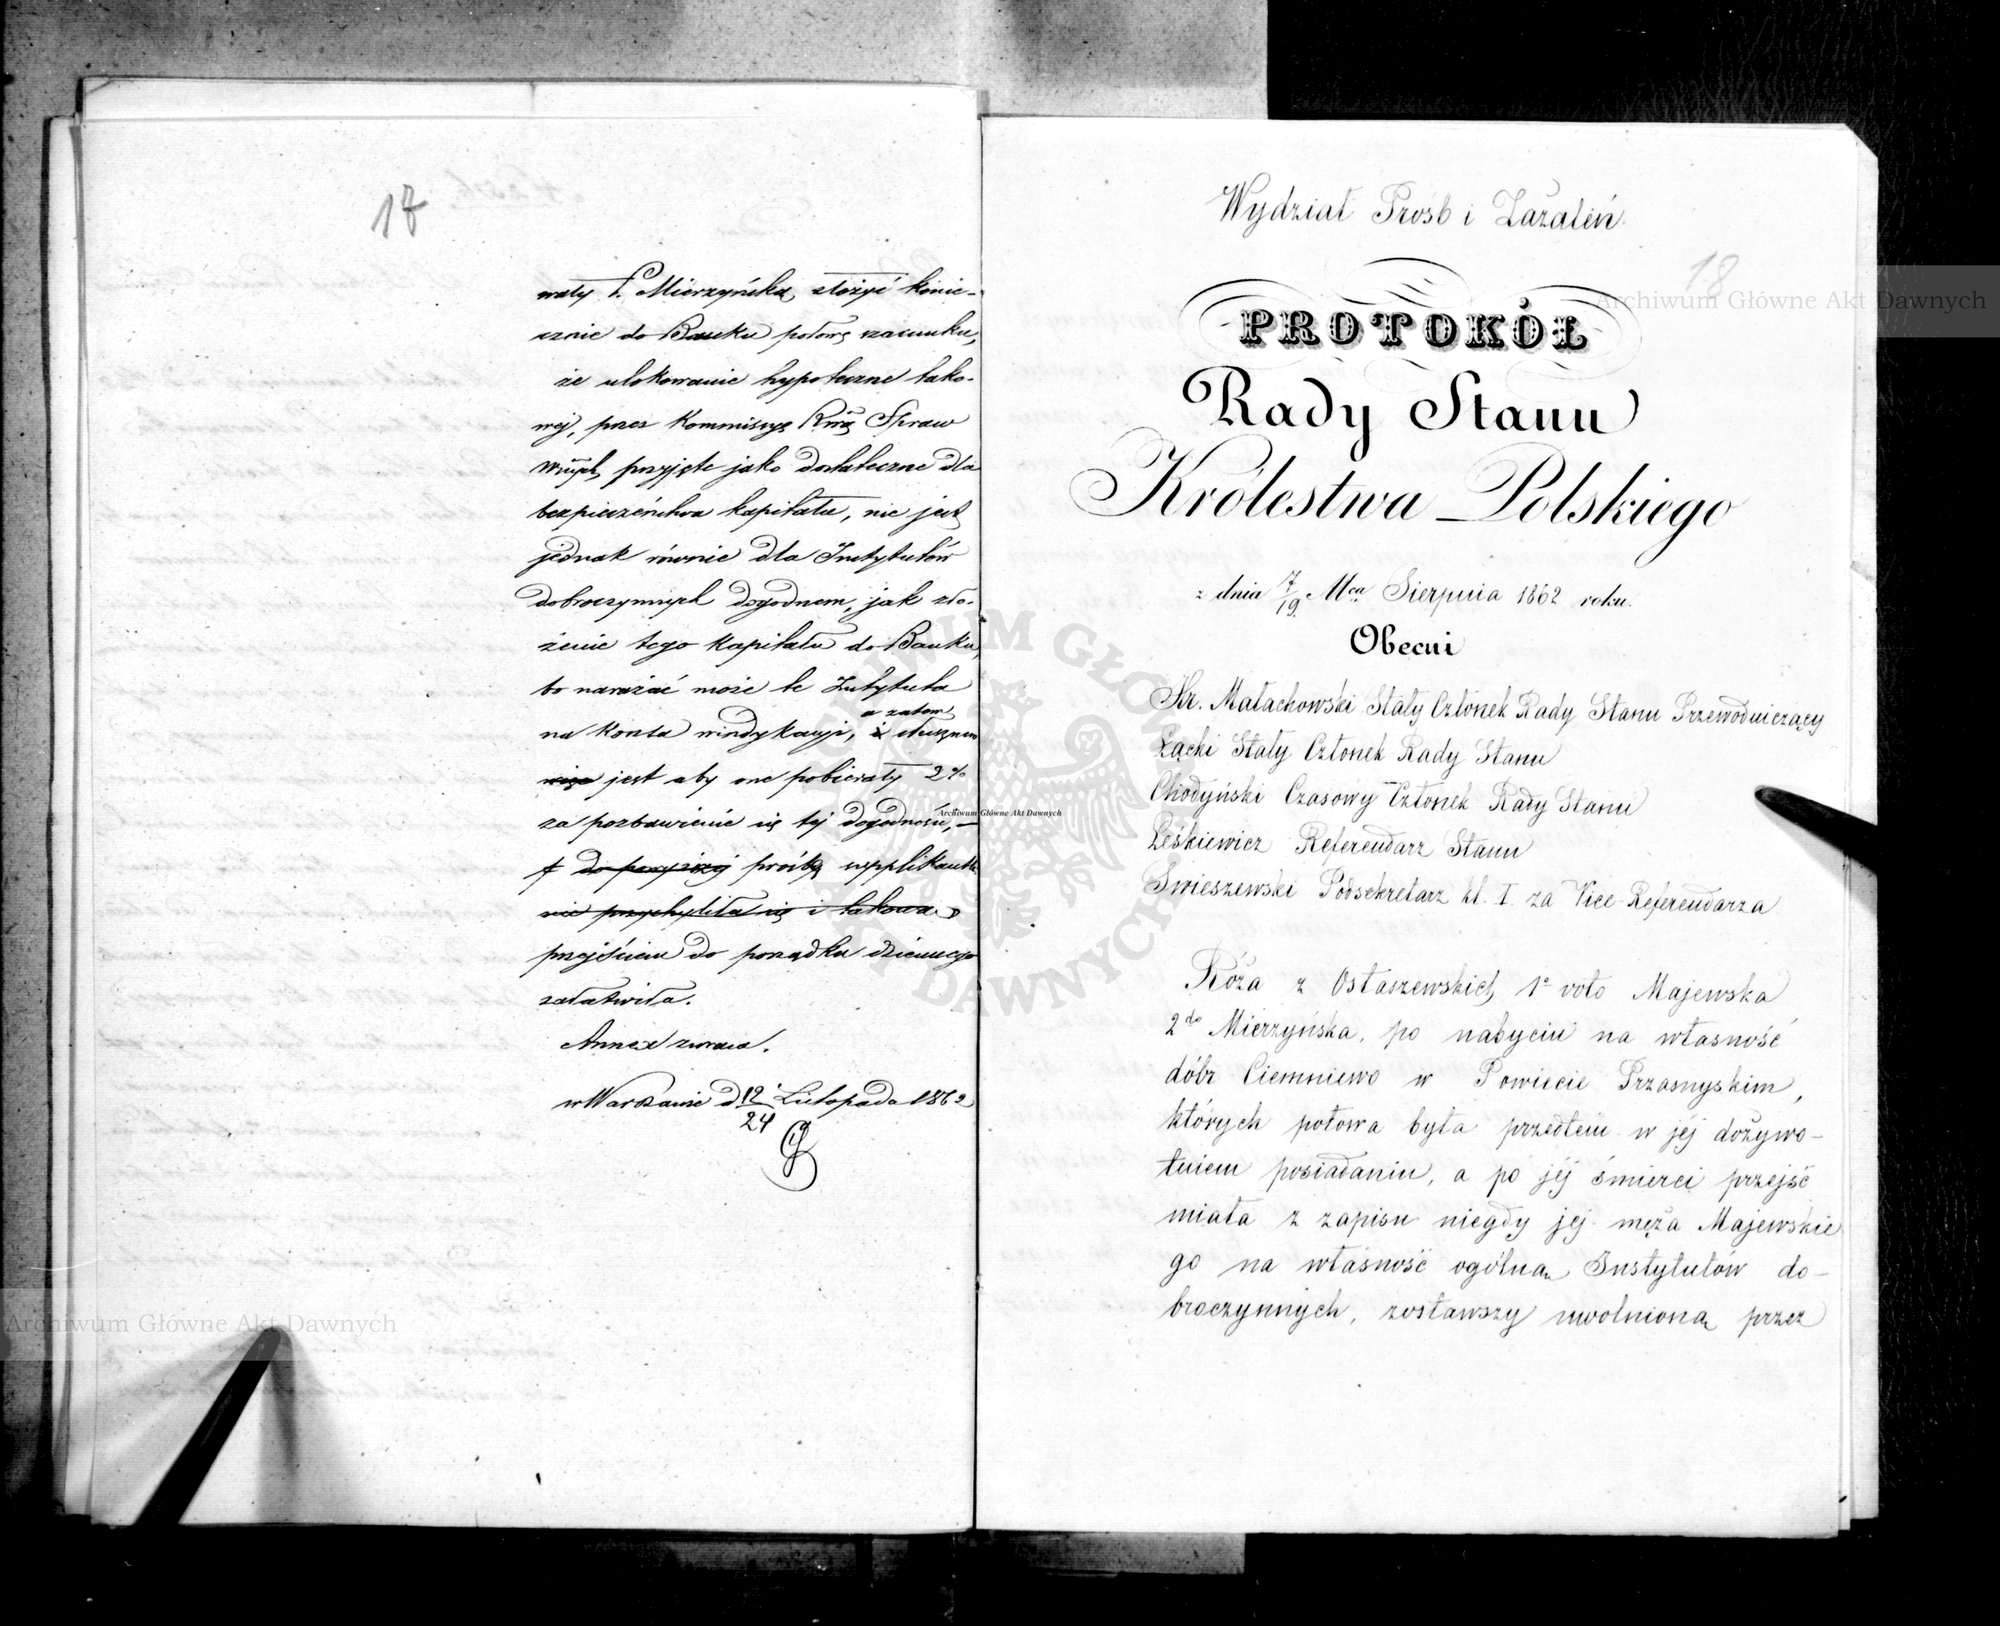 17
wały P. Mierzyńska, złożyć konie-
cznie do Banku połowę szacunku,
że ulokowanie hypoteczne tako-
wej, przez Kommissyę Rwą Spraw
Wwnych, przyjęte jako dostateczne dla
bezpieczeństwa kapitału, nie jest
jednak równie dla Instytutów
dobroczynnych dogodnem, jak zło-
żenie tego kapitału do Banku,
bo narażać może te Instytuta
a zatem
na koszta windykacyi, i słusznem
więc jest aby one pobierały 2%
za pozbawienie się tej dogodności, —
prośbę supplikantki
nie przychyliła się i takową
przejściem do porządku dziennego
załatwiła.
Annex zwraca.
w Warszawie d 12/24 Listopada 1862
Wydział Prośb i Zażaleń.
18
PROTOKÓŁ
Rady Stanu
Królestwa Polskiego
z dnia 7/19 Mca Sierpnia 1862 roku.
Obecni
Hr. Małachowski Stały Członek Rady Stanu Przewodniczący
Łącki Stały Członek Rady Stanu
Chodyński Czasowy Członek Rady Stanu
Leśkiewicz Referendarz Stanu
Swieszewski Podsekretarz kl. I. za Vice-Referendarza
Róża z Ostaszewskich 1o voto Majewska
2do Mierzyńska, po nabyciu na własność
dóbr Ciemniewo w Powiecie Przasnyskim,
których połowa była przedtem w jéj dożywo-
tniem posiadaniu, a po jéj śmierci przejść
miała z zapisu niegdy jéj męża Majewskie
go na własność ogólną Instytutów do-
broczynnych, zostawszy uwolnioną przez
Archiwum Główne Akt Dawnych
Archiwum Główne Akt Dawnych
Archiwum Główne Akt Dawnych
ARCHIWUM GŁÓWNE AKT DAWNYCH